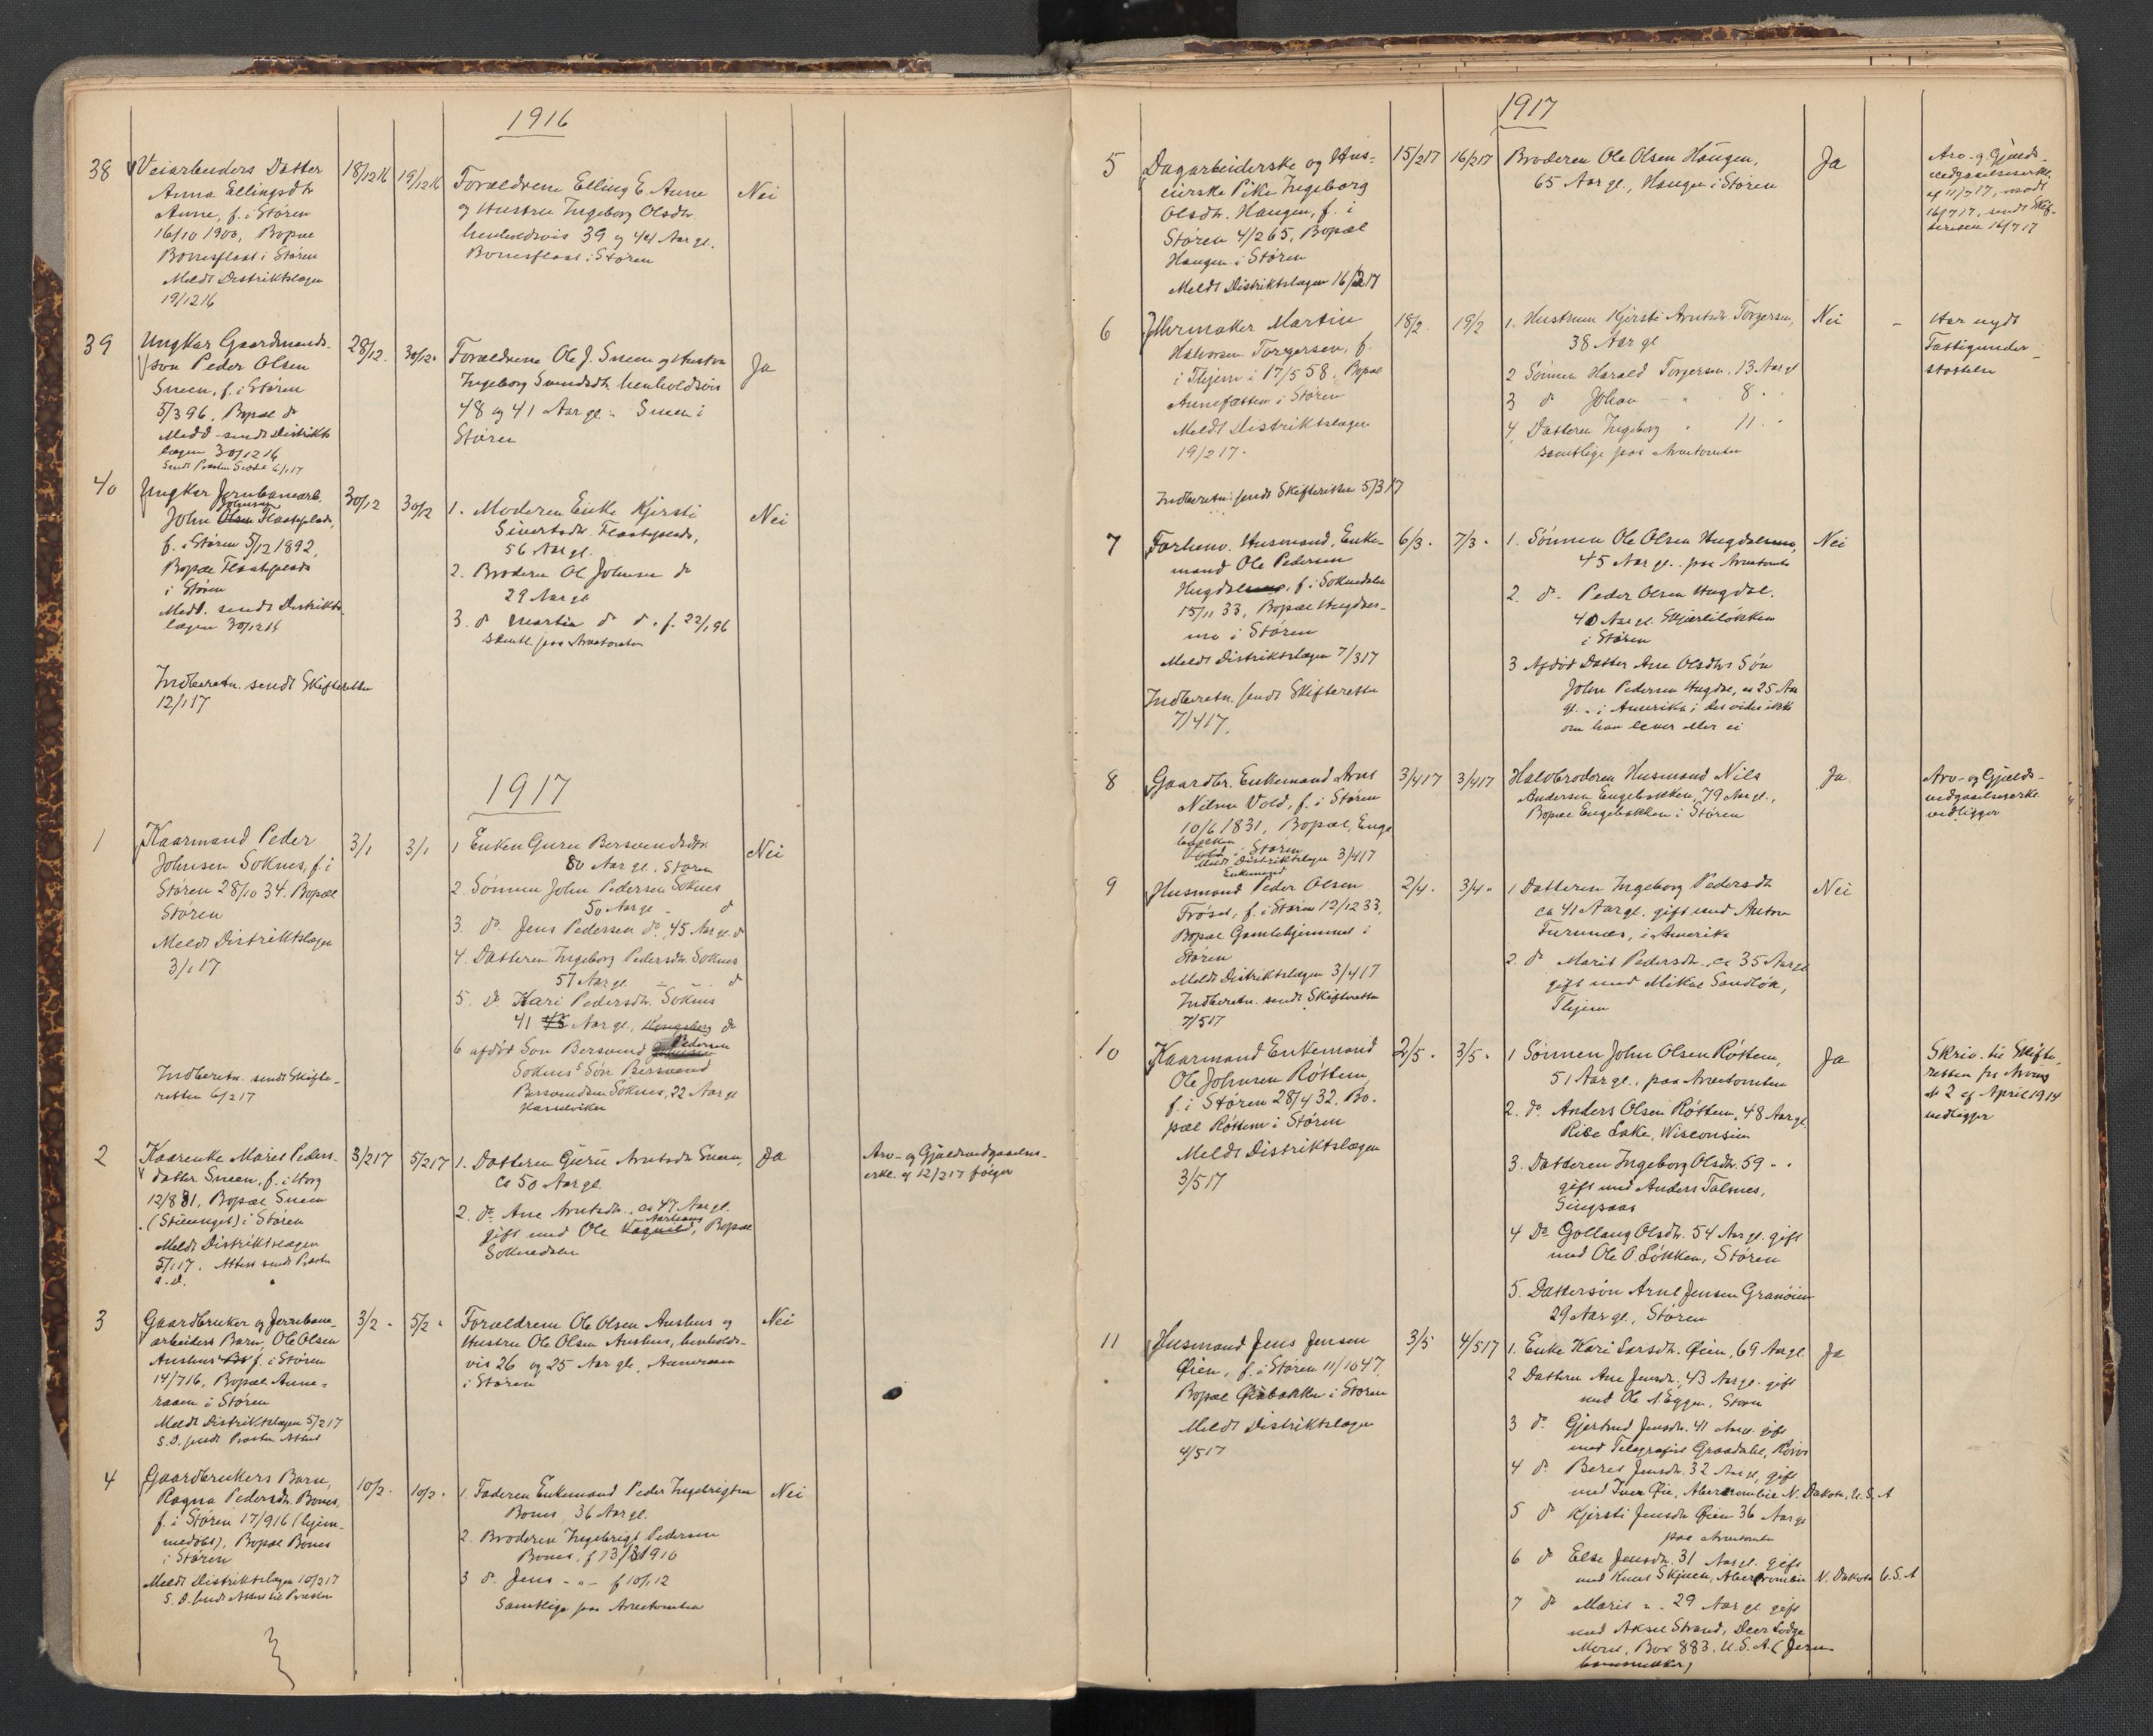 1916
38 Veiarbeiders Datter
Anna Ellingsdtr
Aune, f. i Støren
16/10 1900, Bopæl
i Støren
Meldt Distriktslægen
19/12 16
18/12 16
19/12 16
Forældrene Elling E. Aune
og Hustru Ingeborg Olsdtr.
henholdsvis 39 og 44 Aar gl.
i Støren
Nei
39 Ungkar Gaardmands-
søn Peder Olsen
Sneen, f. i Støren
5/3 96, Bopæl do
Medd. sendt Distrikts
lægen 30/12 16
Sendt Præsten 6/1 17
28/12.
30/12.
Forældrene Ole J. Sneen og Hustru
Ingeborg henholdsvis
48 og 41 Aar gl. Sneen i
Støren
Ja
40 Ungkar Jernbanearb.
Johnsen
John Olsen Flaateplads,
f. i Støren 5/12 1892,
Bopæl Flaateplads
i Støren
Medd. sendt Distrikts-
lægen 30/12 16
Indberetn. sendt Skifteretten
12/1 17
30/12
30/12
1. Moderen Enke Kjersti
Sivertsdtr. Flaateplads,
56 Aar gl.
2. Broderen Ole Johnsen do
29 Aar gl
3. do Martin do do. f. 22/1 96
samtl. paa Arvetomten
Nei
1917
1 Kaarmand Peder
Johnsen Soknes, f. i
Støren 28/10 34. Bopæl
Støren
Meldt Distriktslægen
3/1 17
Indberetn. sendt Skifte-
retten 6/2 17
3/1
3/1
1 Enken Guru Bersvendsdtr.
80 Aar gl. Støren
2. Sønnen John Pedersen Soknes
50 Aar gl. - do
3. do. Jens Pedersen do. 45 Aar gl. do
4. Datteren Ingeborg Pedersdtr. Soknes
57 Aar gl. - do
5. Do. Kari Pedersdtr. Soknes
41 Aar gl., Kongsberg do
6 afdød Søn Bersvend Pedersen
Soknes's Søn Bersvend
Bersvendsen Soknes, 22 Aar gl
Nei
2 Kaarenke Marit Peders-
datter Sneen, f. i Horg
12/8 31, Bopæl Sneen
i Støren
Meldt Distriktslægen
5/1 17. Attest sendt Præsten
s. D.
3/2 17
5/2 17
1. Datteren Guru Arntsdtr Sneen,
ca 50 Aar gl.
2. do. Ane Arntsdtr., ca 47 Aar gl.
gift med Ole, Bopæl
Soknedalen
Ja
Arv- og Gjældsvedgaaelses-
erkl. af 12/2 17 følger
3 Gaardbruker og Jernbane-
arbeiders Barn, Ole Olsen
Aushus f. i Støren
14/7 16, Bopæl Aune-
raaen i Støren
Meldt Distriktslægen 5/2 17
S. D. sendt Præsten Attest
3/2 -
5/2 -
Forældrene Ole Olsen Aushus og
Hustru Ole Olsen Aushus, henholds-
vis 26 og 25 Aar gle, Auneraaen
i Støren
Nei
4 Gaardbrukers Barn,
Ragna Pedersdtr. Bones,
f. i Støren 17/9 16 (hjem-
medøbt), Bopæl Bones
i Støren
Meldt Distriktslægen 10/2 17
S. D. sendt Attest til Præsten
10/2.
10/2.
1. Faderen Enkemand Peder Ingebrigtsen
Bones, 36 Aar gl.
2. Broderen Ingebrigt Pedersen
Bones, f 13/3 1910
3 do. Jens - " - f 10/1 12
Samtlige paa Arvetomten
Nei
1917
5 Dagarbeiderske og Hus-
eierske Pike Ingeborg
Olsdtr. Haugen, f. i
Støren 4/2 65, Bopæl
Haugen i Støren
Meldt Distriktslægen 16/2 17
15/2 17
16/2 17
Broderen Ole Olsen Haugen,
65 Aar gl., Haugen i Støren
Ja
Arv- og Gjælds-
vedgaaelseserkl.
af 11/7 17, modt
16/7 17, sendt Skif-
teretten 16/7 17
6 Uhrmaker Martin
Halvorsen Torgersen, f.
i Flejem i 17/5 58, Bopæl
Aunefætten i Støren
Meldt Distriktslægen
19/2 17.
Indberetn. sendt Skifteretten 5/3 17
18/2.
19/2
1. Hustruen Kjersti Arntsdtr Torgersen,
38 Aar gl
2 Sønnen Harald Torgersen, 13 Aar gl
3 do Johan - " 8 "
4. Datteren Ingeborg " 11 "
samtlige paa Arvetomten
Nei
-
Har nydt
Fattigunder-
støttelse
7 Forhenv. Husmand, Enke-
mand Ole Pedersen
Hugdal, f. i Soknedalen
15/11 33, Bopæl Hugdal-
mo i Støren
Meldt Distriktslægen 7/3 17
Indberetn. sendt Skifteretten
7/4 17.
6/3 -
7/3 -
1. Sønnen Ole Olsen Hugdal,
45 Aar gl. paa Arvetomten
2. do - Peder Olsen Hugdal.
40 Aar gl. Skjærliløkken
i Støren
3 Afdød Datter Ane Olsdtrs Søn
John Pedersen Hugdal, ca 25 Aar
gl. - i Amerika; det vides ikke
om han lever eller ei
Nei
8 Gaardbr. Enkemand Arnt
Nilsen Vold, f. i Støren
10/6 1831, Bopæl, Enge
bakken
Vold i Støren
Meldt Distriktslægen 3/4 17
3/4 17
3/4 17
Halvbroderen Husmand Nils
Andersen Engebakken, 79 Aar gl.,
Bopæl Engebakken i Støren
Ja
Arv- og Gjælds-
vedgaaelseserkl.
vedligger
9 Enkemand
Husmand Peder Olsen
Frøset, f. i Støren 12/12 33,
Bopæl Gamlehjemmet i
Støren
Meldt Distriktslægen 3/4 17
Indberetn. sendt Skifteretten
7/5 17
2/4.
3/4 -
1 Datteren Ingeborg Pedersdtr
ca 41 Aar gl. gift med Anton
Furunæs, i Amerika
2. do Marit Pedersdtr. ca 35 Aar gl
gift med Mikal Sandløk,
Flejem
Nei
10 Kaarmand Enkemand
Ole Johnsen Røttem,
f. i Støren 28/4 32. Bo-
pæl Røttem i Støren
Meldt Distriktslægen
3/5 17
2/5 -
3/5 -
1 Sønnen John Olsen Røttem,
51 Aar gl., paa Arvetomten
2. do. Anders Olsen Røttem, 48 Aar gl.
Rice Lake, Wisconsin
3. Datteren Ingeborg Olsdtr. 59 - "
gift med Anders Talsnes,
Singsaas
4 Do Gollaug Olsdtr. 54 Aar gl. gift
med Ole O. Løkken, Støren
5. Dattersøn Arnt Jensen Granøien
29 Aar gl., Støren
Ja
Skriv. til Skifte-
retten fra
2 af April 1914
vedligger
11 Husmand Jens Jensen
Øien, f. i Støren 11/10 47,
Bopæl Øiebakken i Støren
Meldt Distriktslægen
4/5 17
3/5
4/5 17
1. Enke Kari Larsdtr. Øien, 69 Aar gl.
2 Datteren Ane Jensdtr., 43 Aar gl. gift
med Ole A. Eggen, Støren
3 do. Gjertrud Jensdtr. 41 Aar gl. gift
med Telegrafist Graadahl,
4 do. Beret Jensdtr. 32 Aar gl, gift
med Iver Øie, Abercrombie N. Dakota, U. S. A
5 do Kjersti Jensdtr Øien 36 Aar gl
paa Arvetomten
6 do Else Jensdtr. 31 Aar gl. gift
med Knut Skjuen, Abercrombie N. Dakota U. S. A
7 do Marit " - 29 Aar gl. gift
med Aksel Strand, Deer Lodge
Mont., Box 883. U. S. A. (Jern
Ja